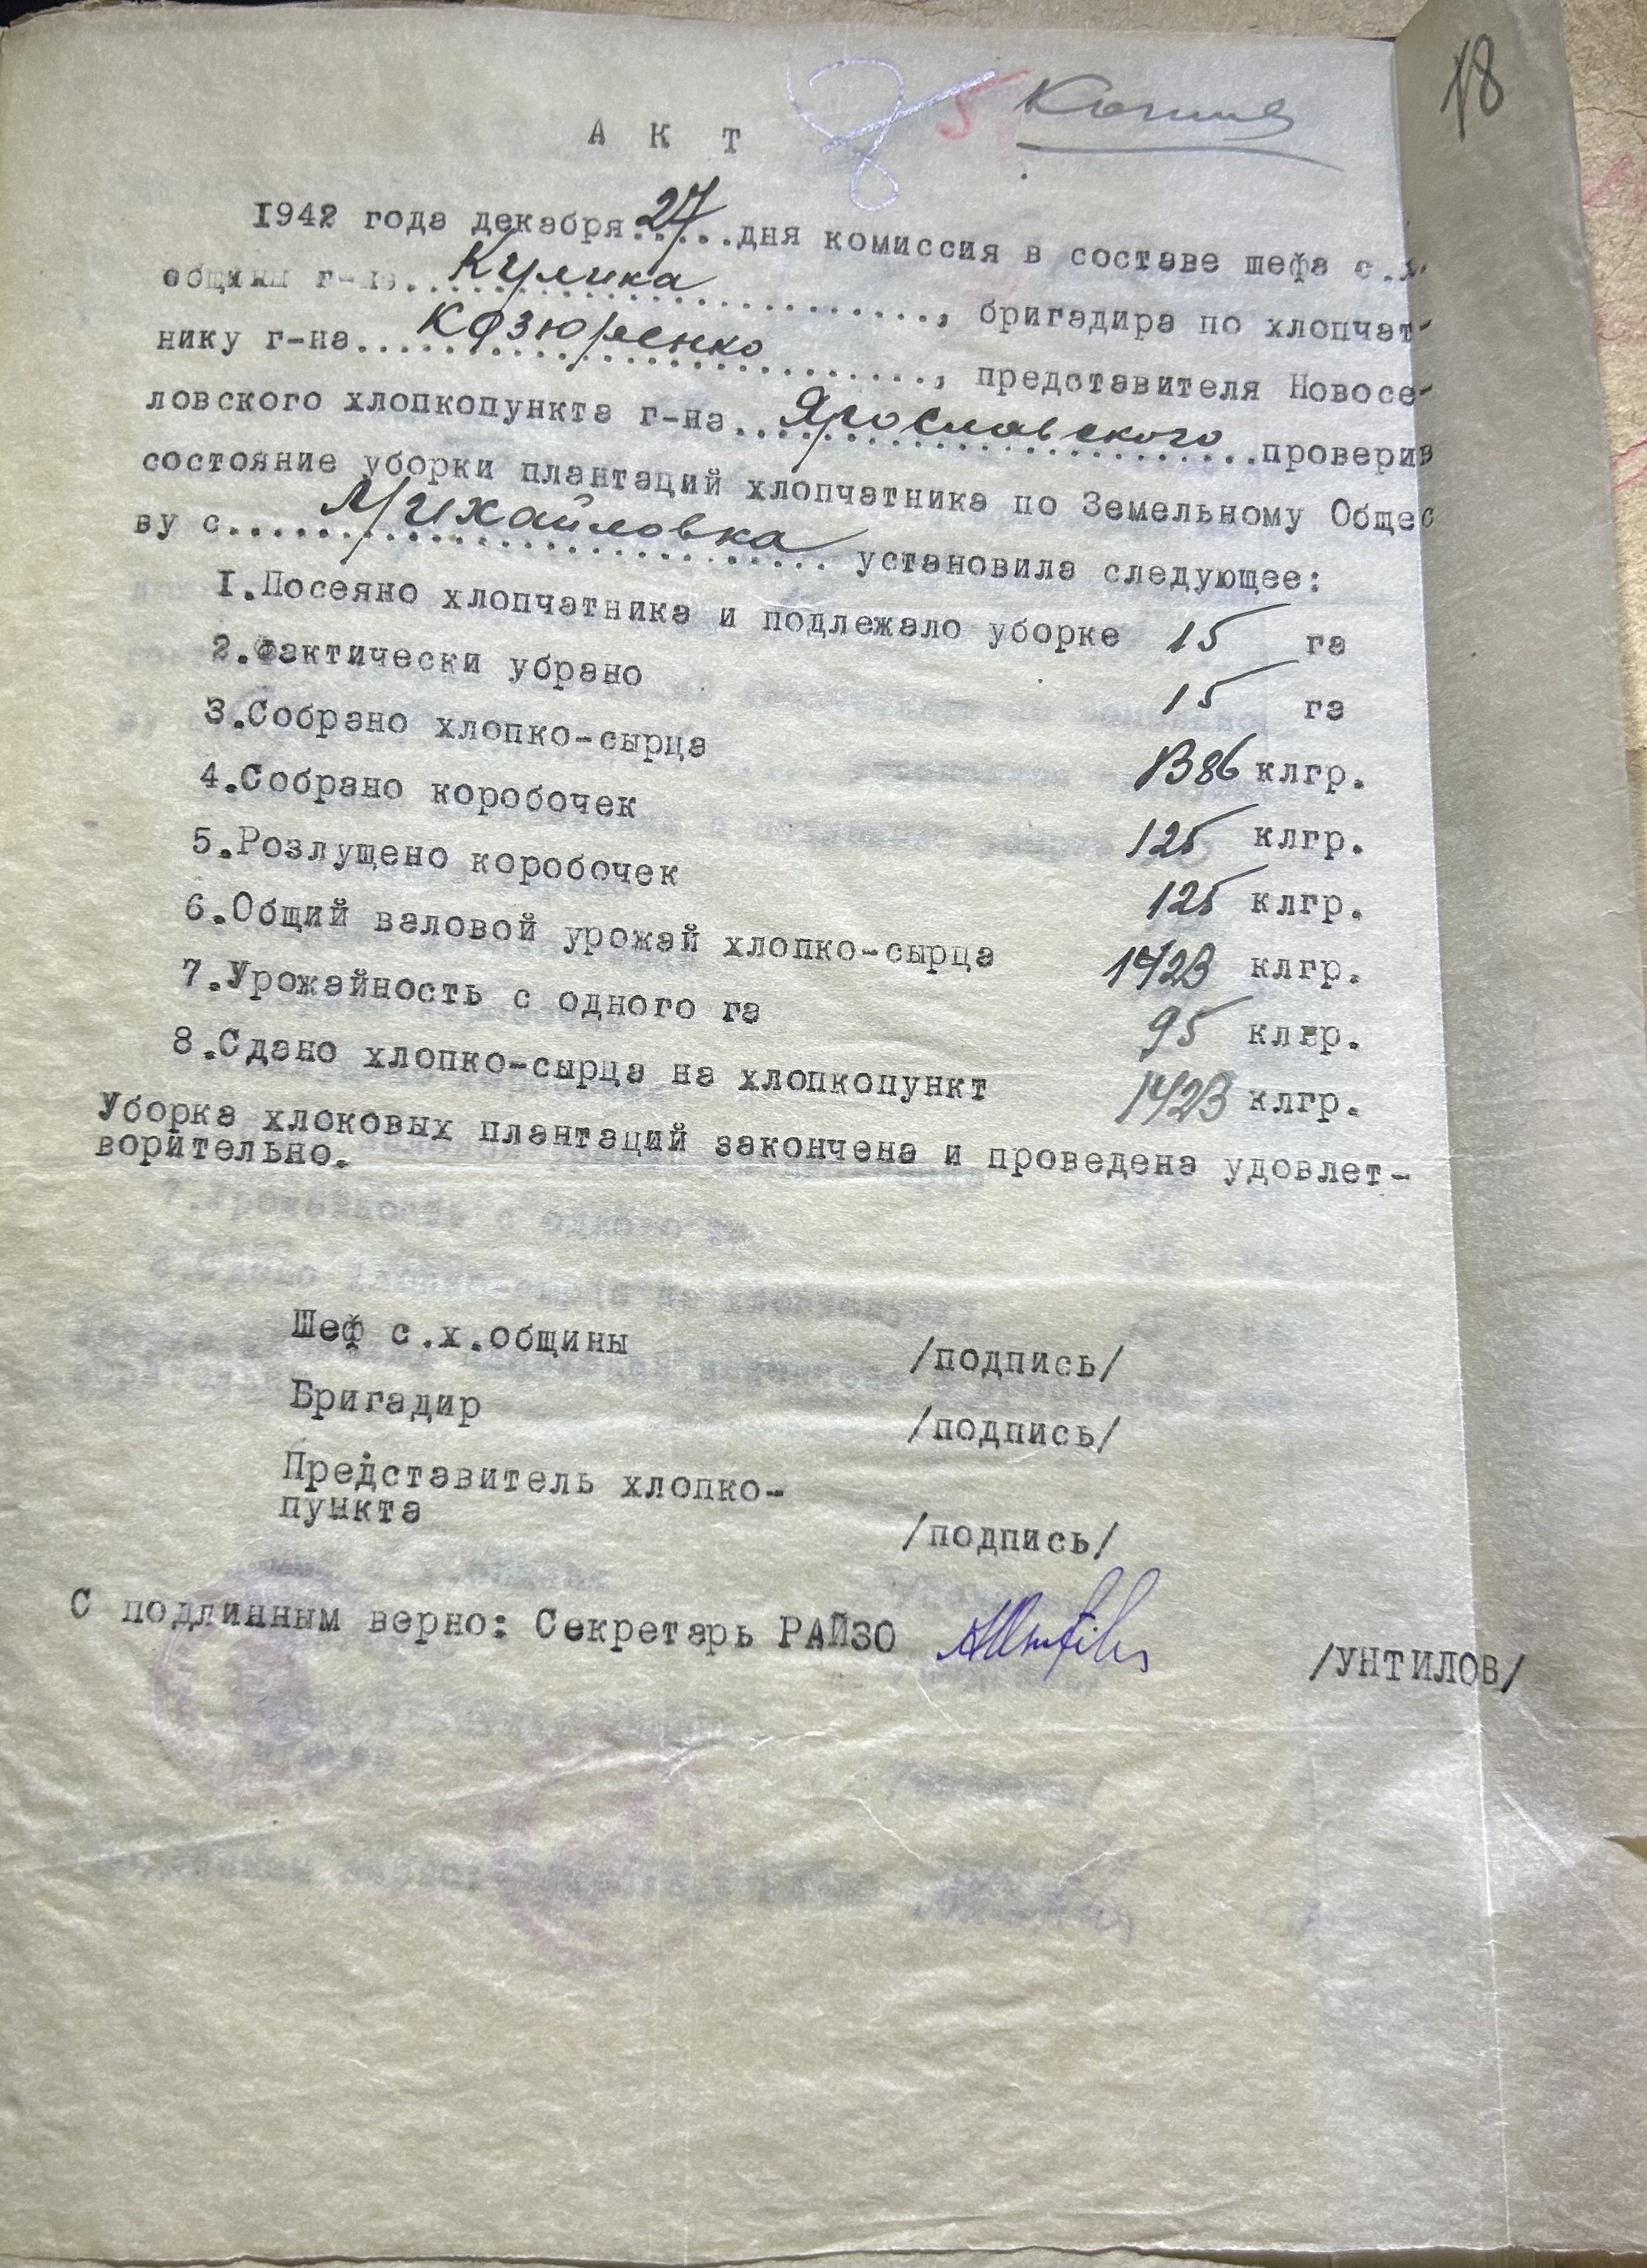 18
5
А К Т
1942 года декабря 27 дня комиссия в составе шефа с.х.
общины г-на Кулика, бригадира по хлопчат-
нику г-на Козюренко, представителя Новосе-
ловского хлопкопункта г-на Ярославского проверив
состояние уборки плантаций хлопчатника по Земельному Общес
ву с. Михайловка установила следующее:
1.Посеяно хлопчатника и подлежало уборке 15 га
2.Фактически убрано 15 га
3.Собрано хлопко-сырца 1386 клгр.
4.Собрано коробочек 125 клгр.
5.Розлущено коробочек 125 клгр.
6.Общий валовой урожай хлопко-сырца 1423 клгр.
7.Урожайность с одного га 95 клгр.
8.Сдано хлопко-сырца на хлопкопункт 1423 клгр.
Уборка хлоковых плантаций закончена и проведена удовлет-
ворительно.
Шеф с.х.общины /подпись/
Бригадир /подпись/
Представитель хлопко-
пункта /подпись/
С подлинным верно: Секретарь РАЙЗО /УНТИЛОВ/